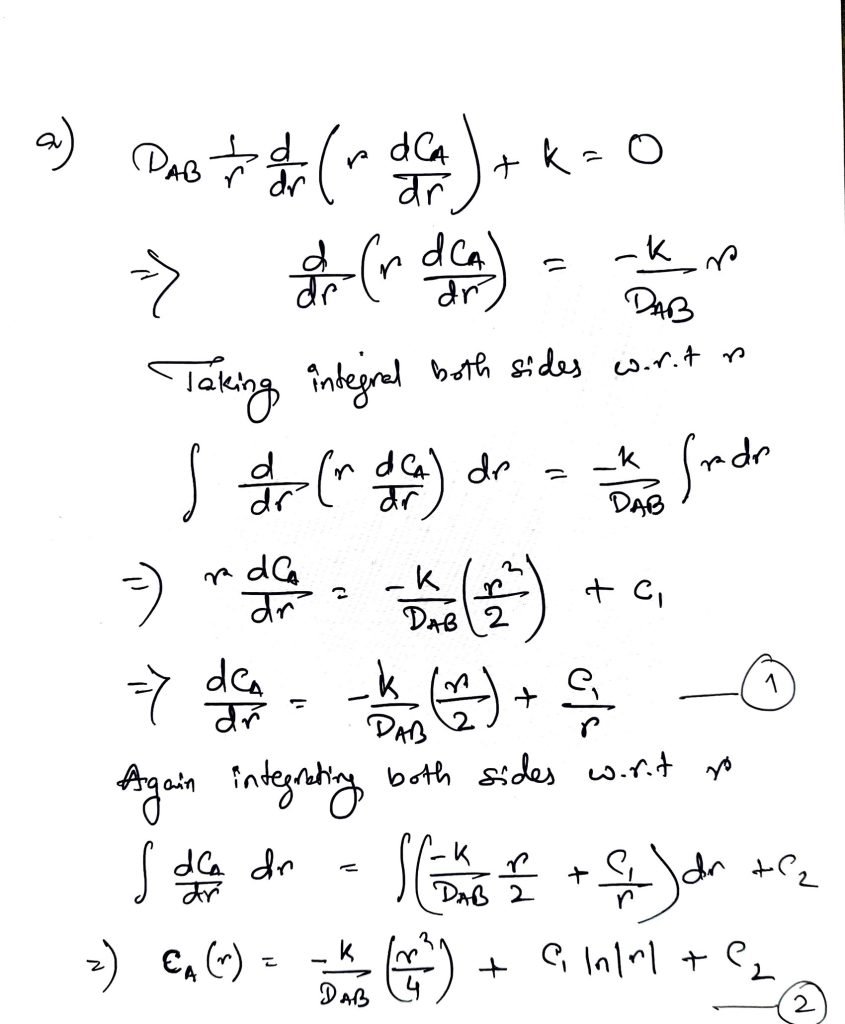 a) D_AB 1/r d/dr (r dC_A/dr) + k = 0
=> d/dr (r dC_A/dr) = -k/D_AB r
Taking integral both sides w.r.t r
∫ d/dr (r dC_A/dr) dr = -k/D_AB ∫ r dr
=> r dC_A/dr = -k/D_AB (r²/2) + C₁
=> dC_A/dr = -k/D_AB (r/2) + C₁/r — ①
Again integrating both sides w.r.t r
∫ dC_A/dr dr = ∫ (-k/D_AB r/2 + C₁/r) dr + C₂
=> C_A(r) = -k/D_AB (r²/4) + C₁ ln|r| + C₂
— ②